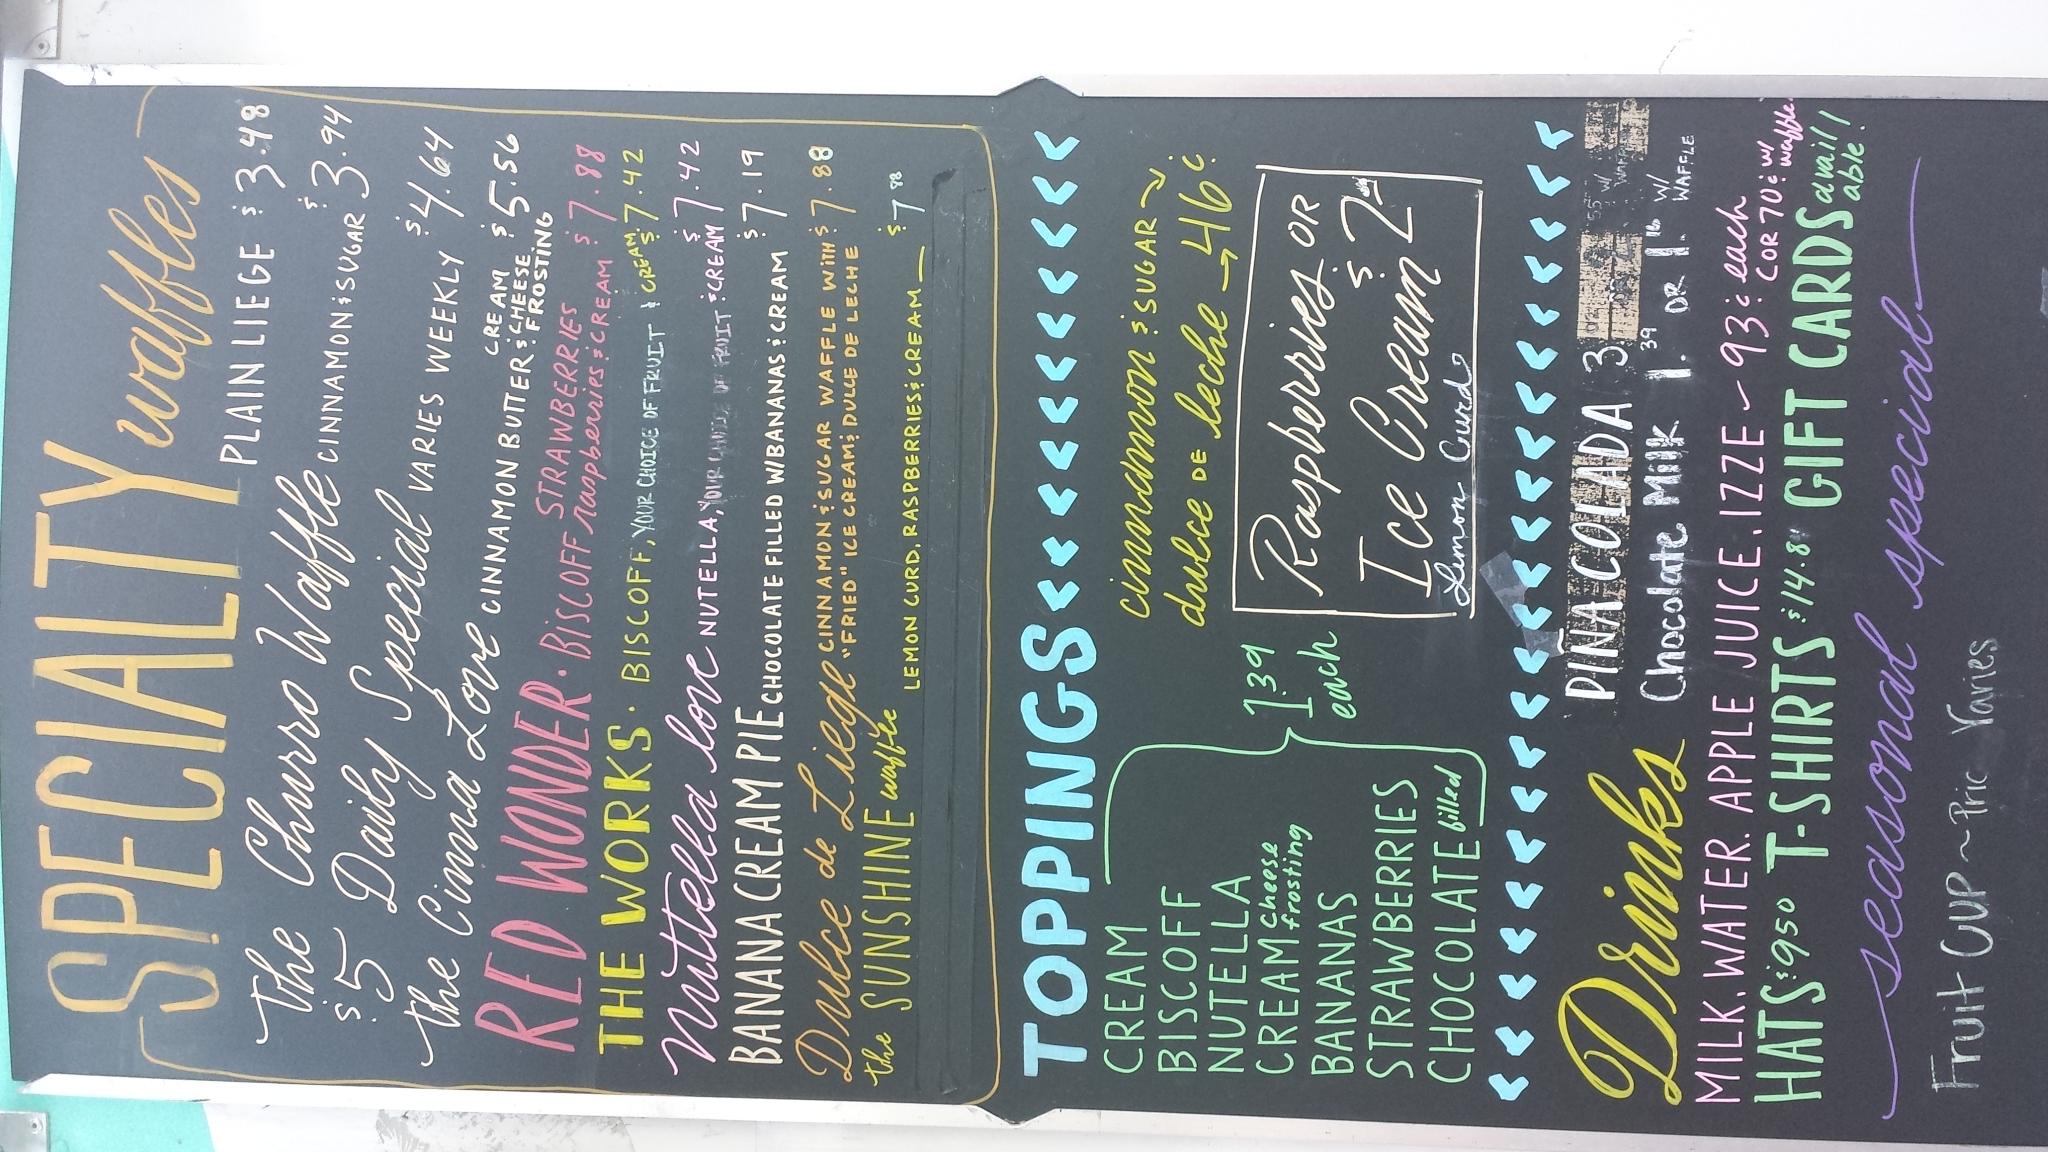 SPECIALTY waffles
PLAIN LIEGE $3.48
The Churro Waffle CINNAMON & SUGAR $3.94
$5 Daily Special VARIES WEEKLY $4.64
the Cinna Love CINNAMON BUTTER & CREAM CHEESE FROSTING $5.56
RED WONDER · BISCOFF STRAWBERRIES raspberries & CREAM $7.88
THE WORKS · BISCOFF, YOUR CHOICE OF FRUIT & CREAM $7.42
Nutella love NUTELLA, YOUR CHOICE OF FRUIT & CREAM $7.42
BANANA CREAM PIE CHOCOLATE FILLED W/BANANAS & CREAM $7.19
Dulce de Liege CINNAMON & SUGAR WAFFLE WITH $7.88
"FRIED" ICE CREAM & DULCE DE LECHE
the SUNSHINE waffle LEMON CURD, RASPBERRIES & CREAM — $7.88
TOPPINGS
CREAM
BISCOFF
NUTELLA
CREAM cheese frosting
BANANAS
STRAWBERRIES
CHOCOLATE filled
1.39
each
cinnamon & SUGAR
dulce DE leche → 46¢
Raspberries OR
Ice Cream $2
Lemon Curd
Drinks
PIÑA COLADA 3
Chocolate Milk 1.39 OR 1.16 W/ WAFFLE
MILK. WATER. APPLE JUICE. IZZE ~ 93¢ each
(OR 70¢ w/ waffle
HATS $9.50 T-SHIRTS $14.8 GIFT CARDS avail able!
seasonal special
Fruit CUP ~ Pric Varies